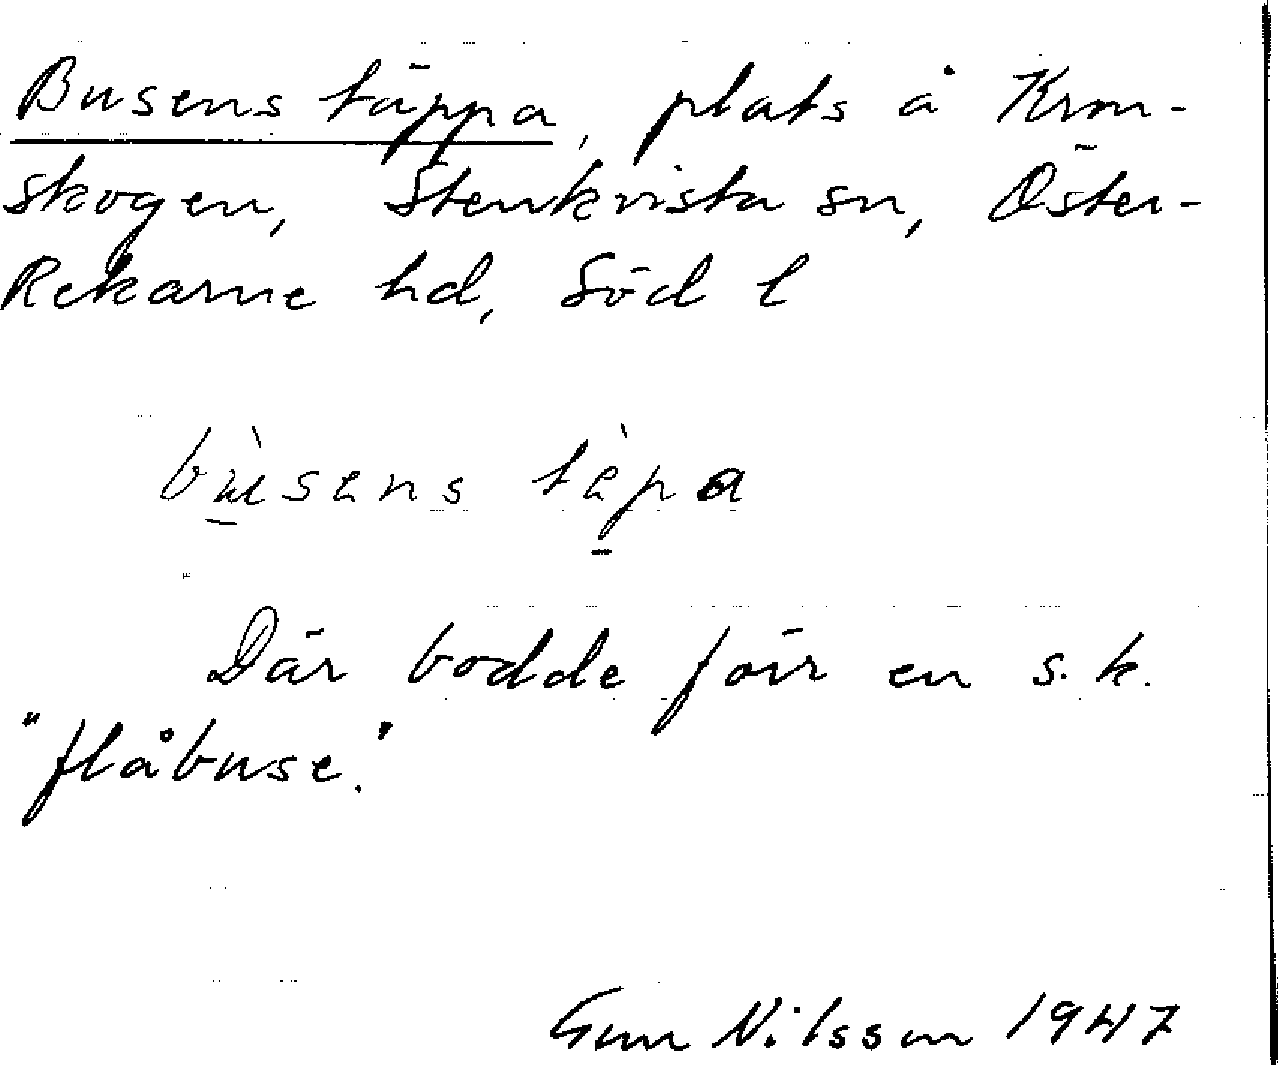 Busens täppa, plats å Kron-
skogen, Stenkvista sn, Öster-
Rekarne hd, Söd l
bùsens tèpa
Där bodde förr en s.k.
"flåbuse."
Gun Nilsson 1947